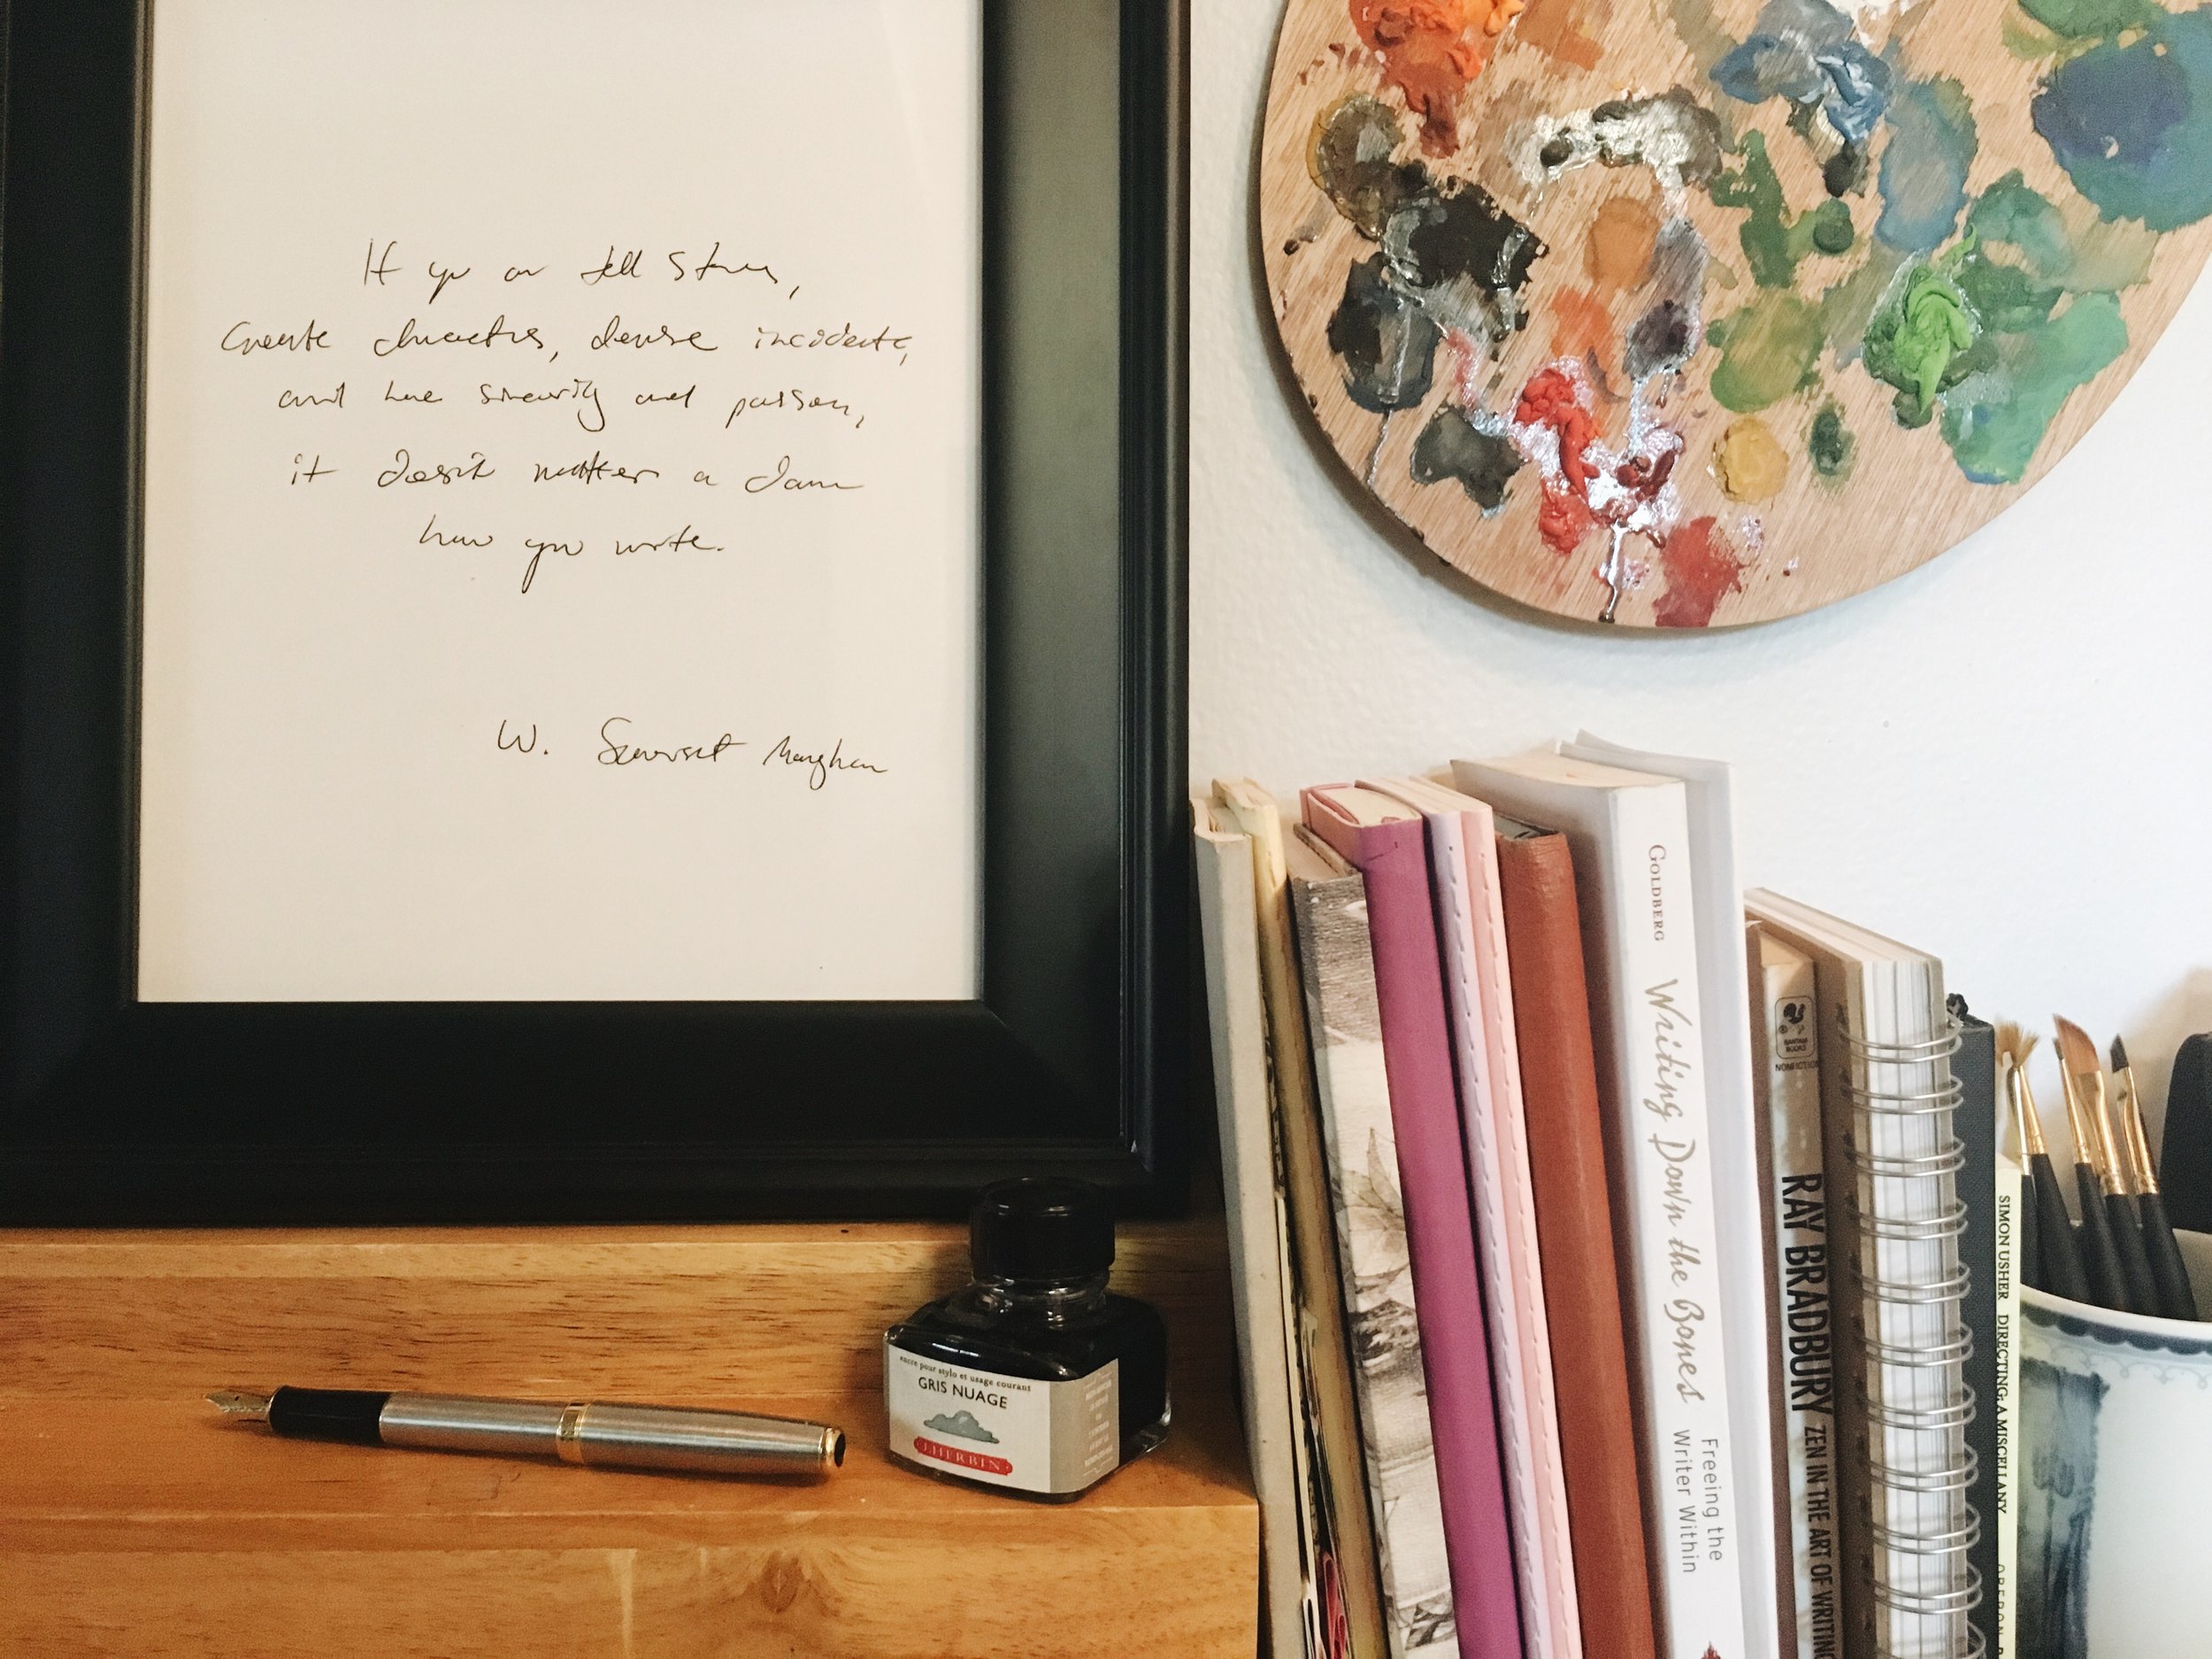 If you can tell stories,
Create characters, devise incidents,
and have sincerity and passion,
it doesn't matter a damn
how you write.
W. Somerset Maugham
encre pour stylo et usage courant
GRIS NUAGE
J.HERBIN
GOLDBERG Writing Down the Bones
Freeing the
Writer Within
BANTAM
BOOKS
NONFICTION
RAY BRADBURY ZEN IN THE ART OF WRITING
SIMON USHER DIRECTING: A MISCELLANY OBERON